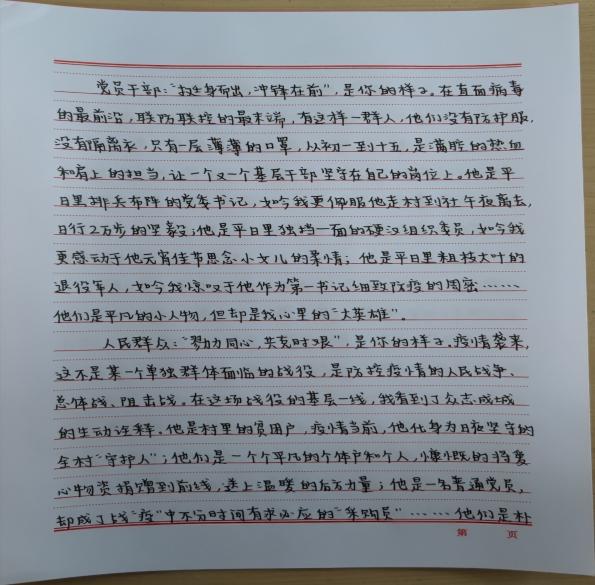 党员干部:“挺身而出,冲锋在前”,是你的样子。在直面病毒
的最前沿,联防联控的最末端,有这样一群人,他们没有防护服,
没有隔离衣,只有一层薄薄的口罩,从初一到十五,是满腔的热血
和肩上的担当,让一个又一个基层干部坚守在自己的岗位上。他是平
日里排兵布阵的党委书记,如今我更佩服他走村到社午夜离去,
日行2万步的坚毅;他是平日里独挡一面的硬汉组织委员,如今我
更感动于他元宵佳节思念小女儿的柔情;他是平日里粗枝大叶的
退役军人,如今我惊叹于他作为第一书记细致防疫的周密……
他们是平凡的小人物,但却是我心里的“大英雄”。
人民群众:“勠力同心,共克时艰”,是你的样子。疫情袭来,
这不是某一个单独群体面临的战役,是防控疫情的人民战争、
总体战、阻击战。在这场战役的基层一线,我看到了众志成城
的生动诠释。他是村里的贫困户,疫情当前,他化身为日夜坚守的
全村“守护人”;他们是一个个平凡的个体户和个人,慷慨的将爱
心物资捐赠到前线,送上温暖的后方力量;他是一名普通党员,
却成了战“疫”中不分时间有求必应的“采购员”……他们是朴
第 页